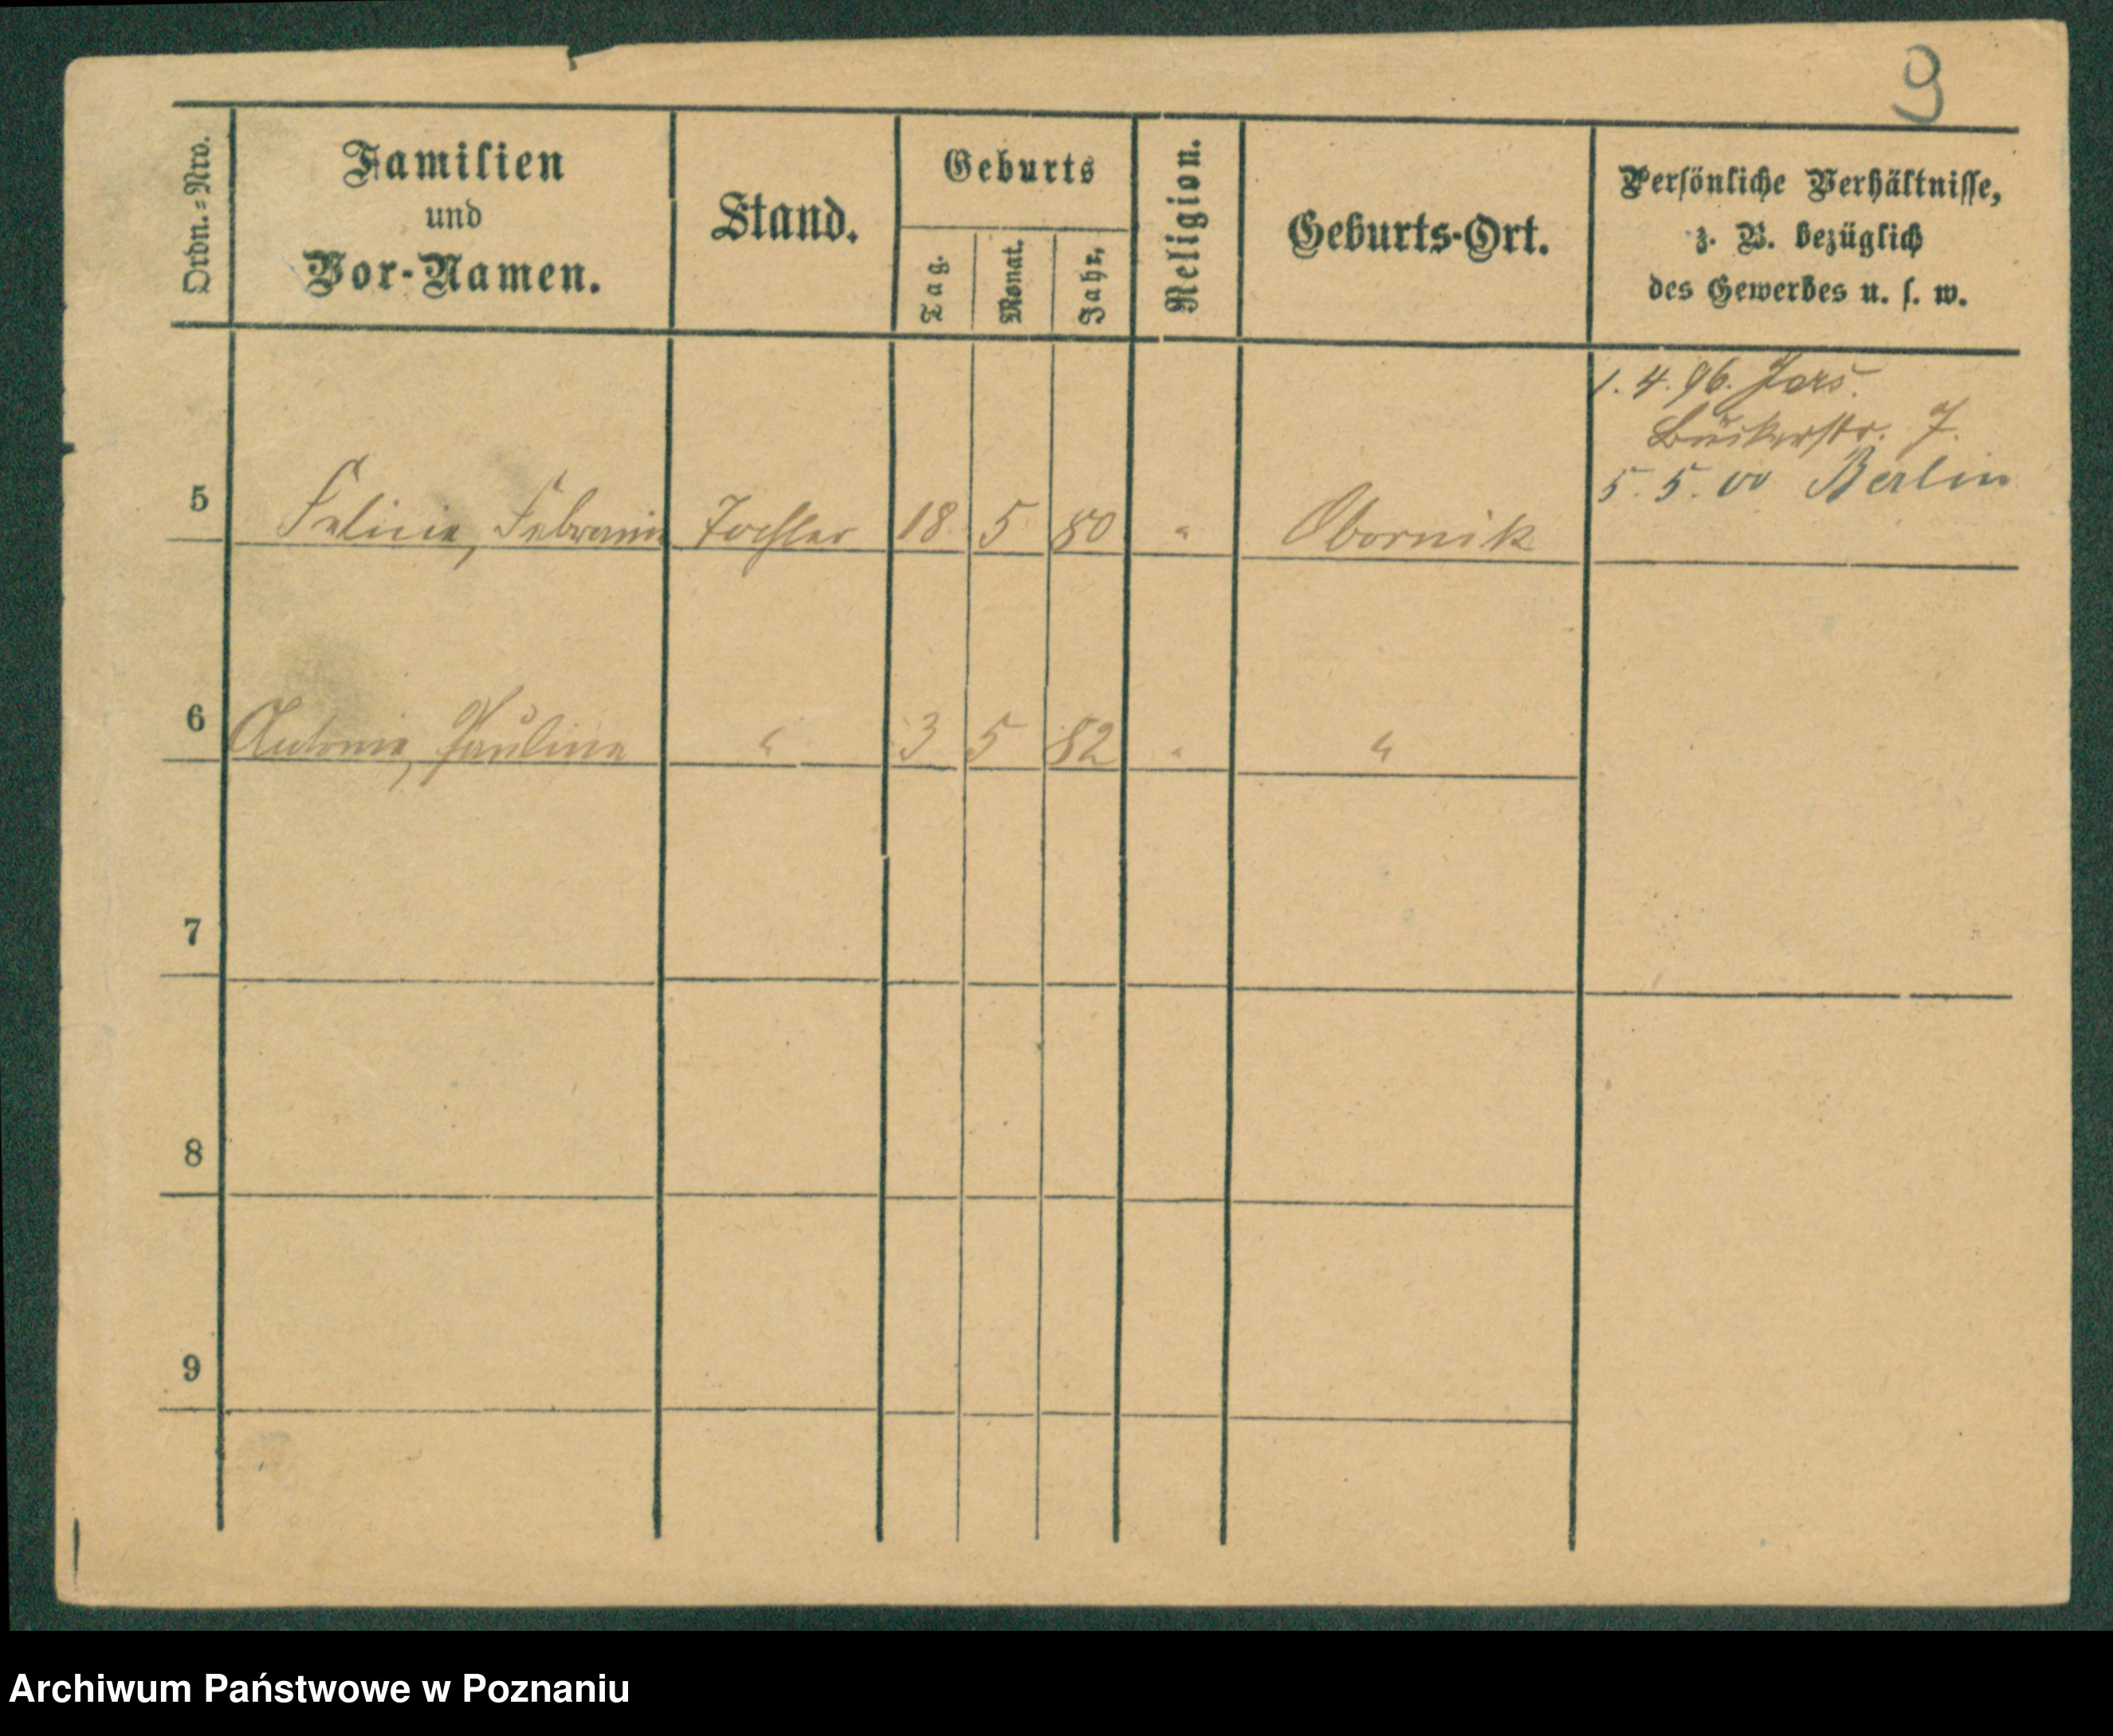 9
Ordn.=Nro.
Familien
und
Vor-Namen.
Stand.
Geburts
Tag.
Monat.
Jahr.
Religion.
Geburts-Ort.
Persönliche Verhältnisse,
z. B. bezüglich
des Gewerbes u. s. w.
1. 4. 96.
7.
5. 5. 00 Berlin
5 Felicia, Tochter 18 5 80 " Obornik
6 Antonie, Paulina " 3 5 82 " "
7
8
9
Archiwum Państwowe w Poznaniu